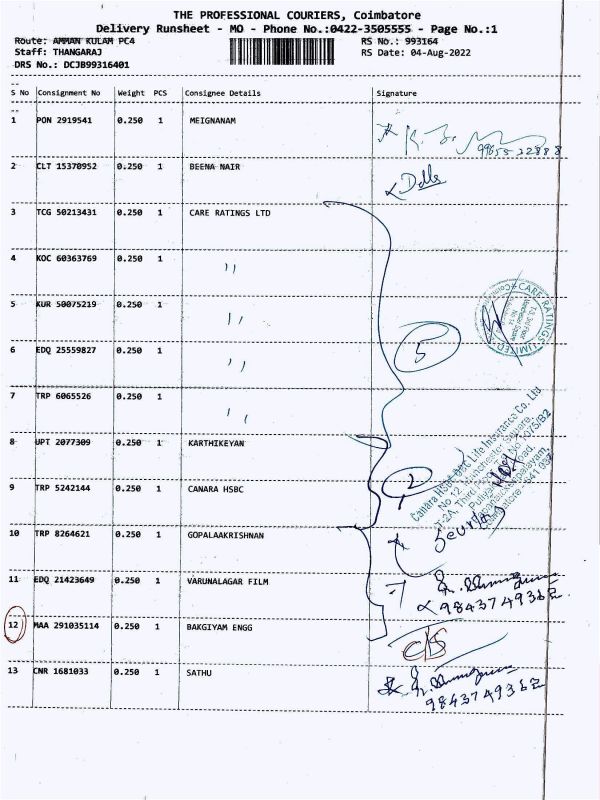 THE PROFESSIONAL COURIERS, Coimbatore
Delivery Runsheet - MO - Phone No.:0422-3505555 - Page No.:1
Route: AMMAN KULAM PC4 RS No.: 993164
Staff: THANGARAJ RS Date: 04-Aug-2022
DRS No.: DCJB99316401
S No Consignment No Weight PCS Consignee Details Signature
1 PON 2919541 0.250 1 MEIGNANAM
99655 22888
2 CLT 15370952 0.250 1 BEENA NAIR
3 TCG 50213431 0.250 1 CARE RATINGS LTD
4 KOC 60363769 0.250 1 ''
5 KUR 50075219 0.250 1 ''
CARE RATINGS LIMITED
6 EDQ 25559827 0.250 1 ''
5
7 TRP 6065526 0.250 1 ''
8 UPT 2077309 0.250 1 KARTHIKEYAN
9 TRP 5242144 0.250 1 CANARA HSBC
2
Canara HSBC OBC Life Insurance Co. Ltd
10 TRP 8264621 0.250 1 GOPALAAKRISHNAN
11 EDQ 21423649 0.250 1 VARUNALAGAR FILM
9843749362
12 MAA 291035114 0.250 1 BAKGIYAM ENGG
13 CNR 1681033 0.250 1 SATHU
9843749362